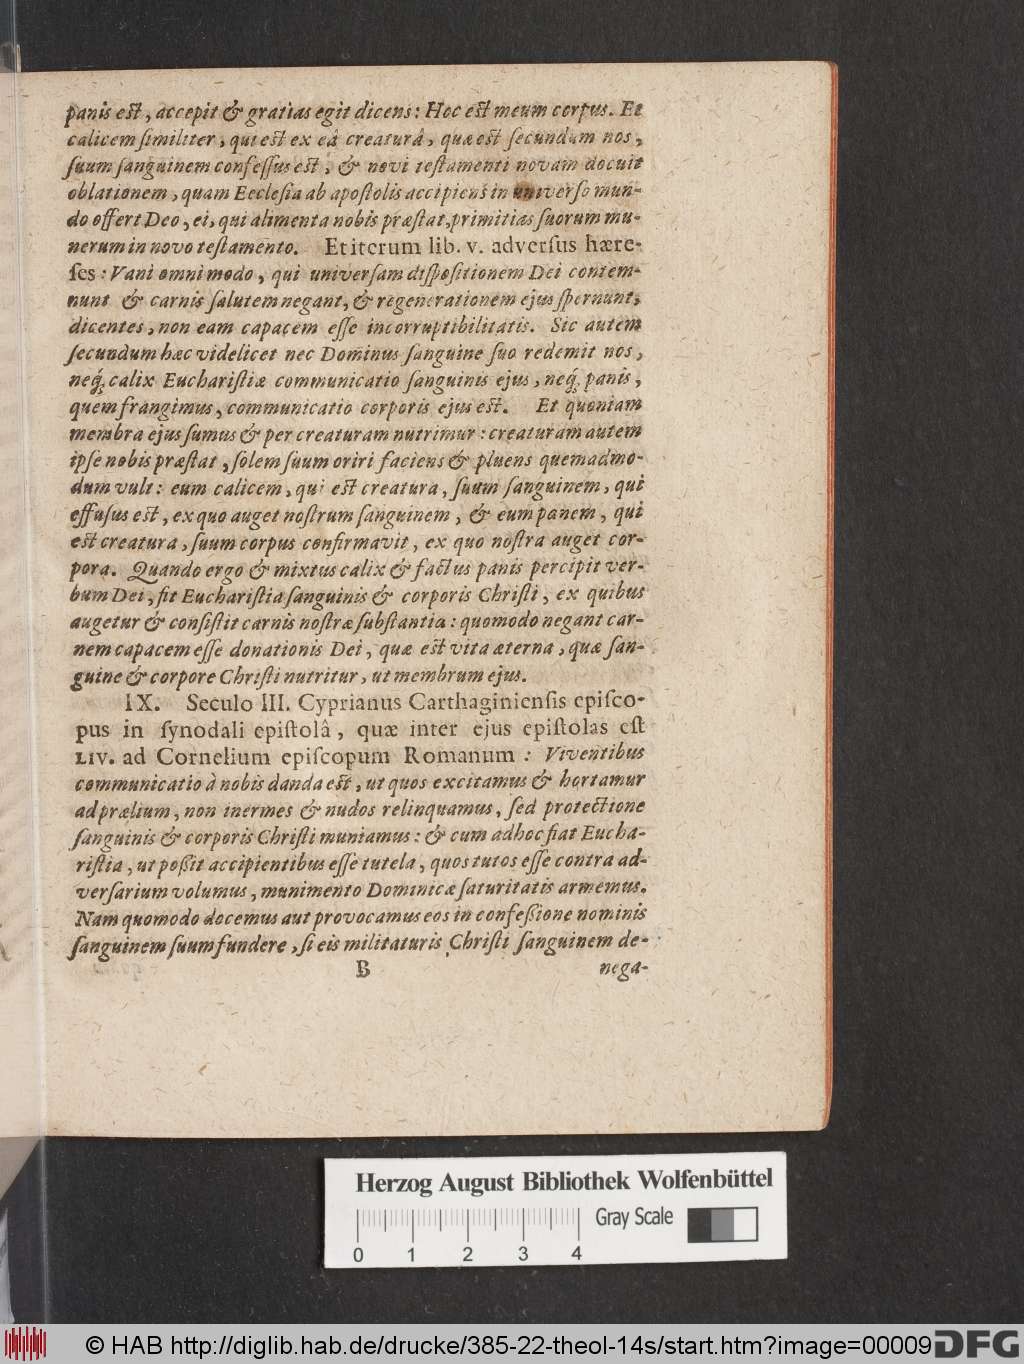 panis est, accepit & gratias egit dicens: Hoc est meum corpus. Et
calicem ſimiliter, qui est ex eâ creaturâ, quæ est ſecundum nos,
ſuum ſanguinem confeſſus est, & novi teſtamenti novam docuit
oblationem, quam Eccleſia ab apoſtolis accipiens in univerſo mun-
do offert Deo, ei, qui alimenta nobis præſtat, primitias ſuorum mu-
nerum in novo teſtamento. Et iterum lib. v. adverſus hære-
ſes: Vani omnimodo, qui univerſam diſpoſitionem Dei contem-
nunt & carnis ſalutem negant, & regenerationem ejus ſpernunt,
dicentes, non eam capacem eſſe incorruptibilitatis. Sic autem
ſecundum hæc videlicet nec Dominus ſanguine ſuo redemit nos,
neq́; calix Euchariſtiæ communicatio ſanguinis ejus, neq́; panis,
quem frangimus, communicatio corporis ejus est. Et quoniam
membra ejus ſumus & per creaturam nutrimur: creaturam autem
ipſe nobis præſtat, ſolem ſuum oriri faciens & pluens quemadmo-
dum vult: eum calicem, qui est creatura, ſuum ſanguinem, qui
effuſus est, ex quo auget noſtrum ſanguinem, & eum panem, qui
est creatura, ſuum corpus confirmavit, ex quo noſtra auget cor-
pora. Quando ergo & mixtus calix & factus panis percipit ver-
bum Dei, fit Euchariſtia ſanguinis & corporis Chriſti, ex quibus
augetur & conſiſtit carnis noſtræ ſubſtantia: quomodo negant car-
nem capacem eſſe donationis Dei, quæ est vita æterna, quæ ſan-
guine & corpore Chriſti nutritur, ut membrum ejus.
IX. Seculo III. Cyprianus Carthaginienſis epiſco-
pus in ſynodali epiſtolâ, quæ inter ejus epiſtolas eſt
LIV. ad Cornelium epiſcopum Romanum: Viventibus
communicatio à nobis danda est, ut quos excitamus & hortamur
ad prælium, non inermes & nudos relinquamus, ſed protectione
ſanguinis & corporis Chriſti muniamus: & cum ad hoc fiat Eucha-
riſtia, ut poßit accipientibus eſſe tutela, quos tutos eſſe contra ad-
verſarium volumus, munimento Dominicæ ſaturitatis armemus.
Nam quomodo docemus aut provocamus eos in confeßione nominis
ſanguinem ſuum fundere, ſi eis militaturis Chriſti ſanguinem de-
B nega-
Herzog August Bibliothek Wolfenbüttel
0 1 2 3 4 Gray Scale
© HAB http://diglib.hab.de/drucke/385-22-theol-14s/start.htm?image=00009
DFG